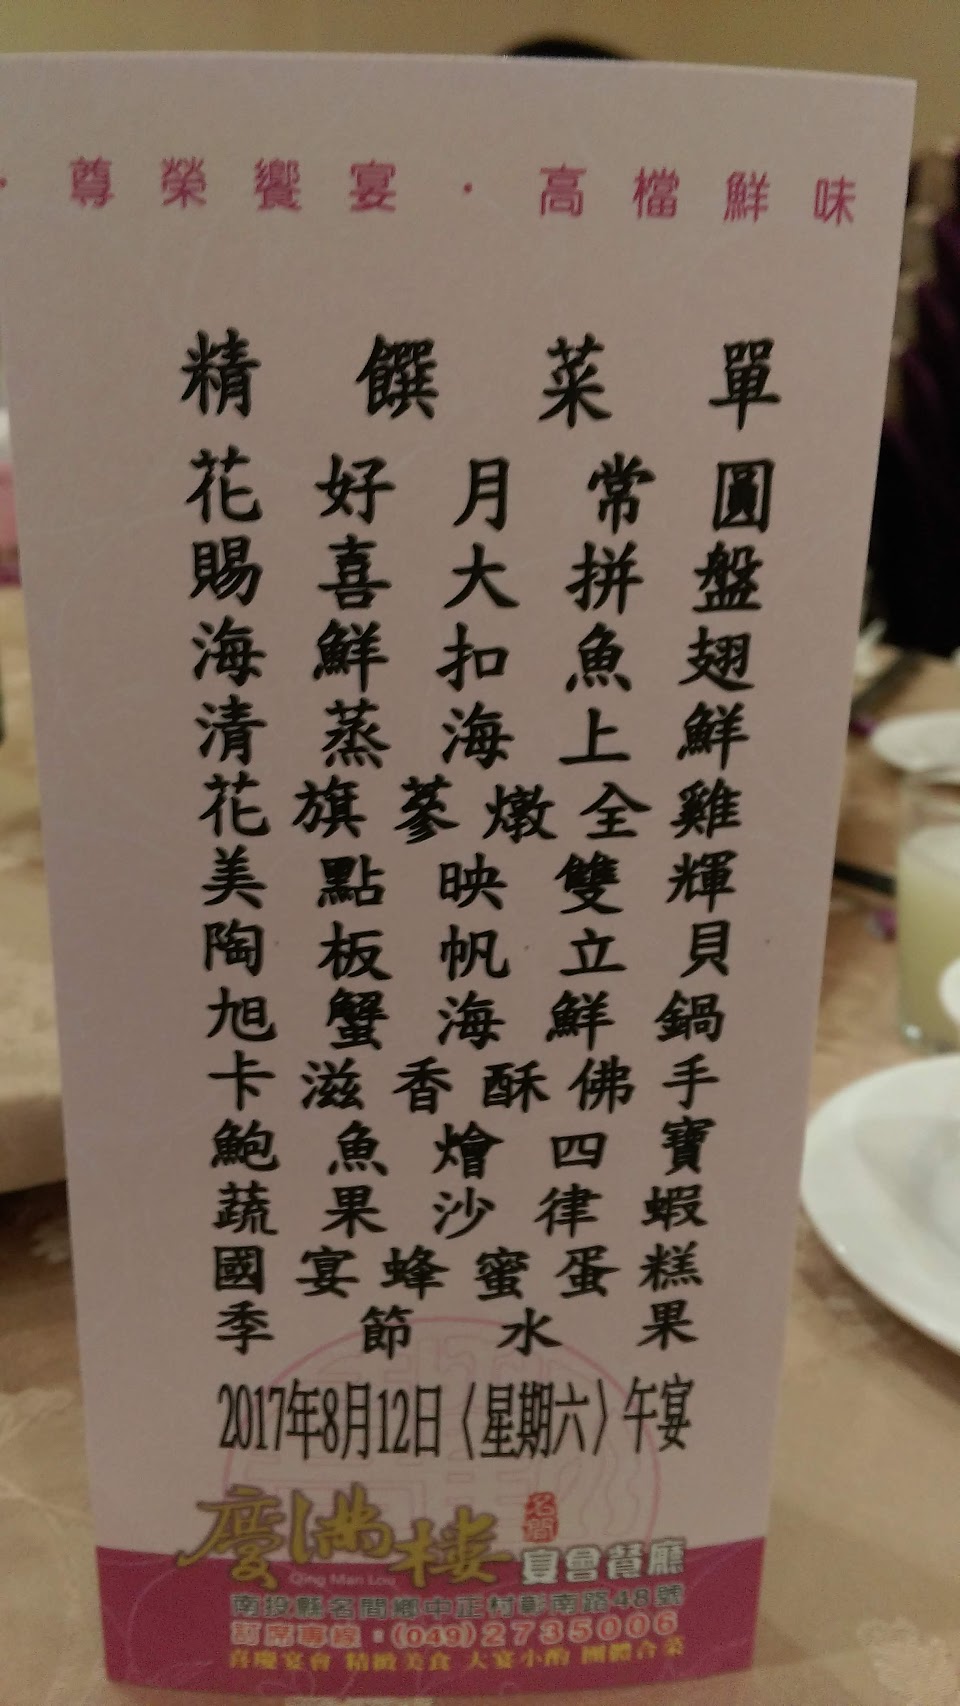 · 尊榮饗宴 · 高檔鮮味
精饌菜單
花好月常圓
賜喜大拼盤
海鮮扣魚翅
清蒸海上鮮
花旗蔘燉全雞
美點映雙輝
陶板帆立貝
旭蟹海鮮鍋
卡滋香酥佛手
鮑魚燴四寶
蔬果沙律蝦
國宴蜂蜜蛋糕
季節水果
2017年8月12日〈星期六〉午宴
慶滿樓 名間 宴會餐廳
Qing Man Lou
南投縣名間鄉中正村彰南路48號
訂席專線:(049)2735006
喜慶宴會 精緻美食 大宴小酌 團體合菜